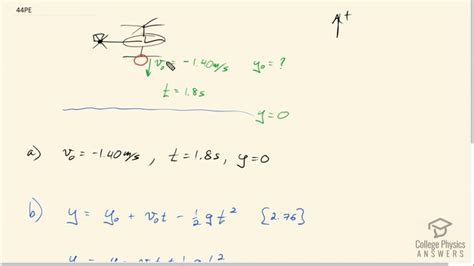 44PE
+
v₀ = -1.40 m/s   y₀ = ?
t = 1.8 s
y = 0
a) v₀ = -1.40 m/s , t = 1.8 s, y = 0
b) y = y₀ + v₀t - ½gt² [2.76]
College Physics
ANSWERS